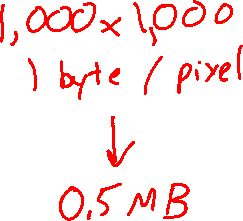 1,000x1,000
1 byte / pixel
↓
0.5 MB